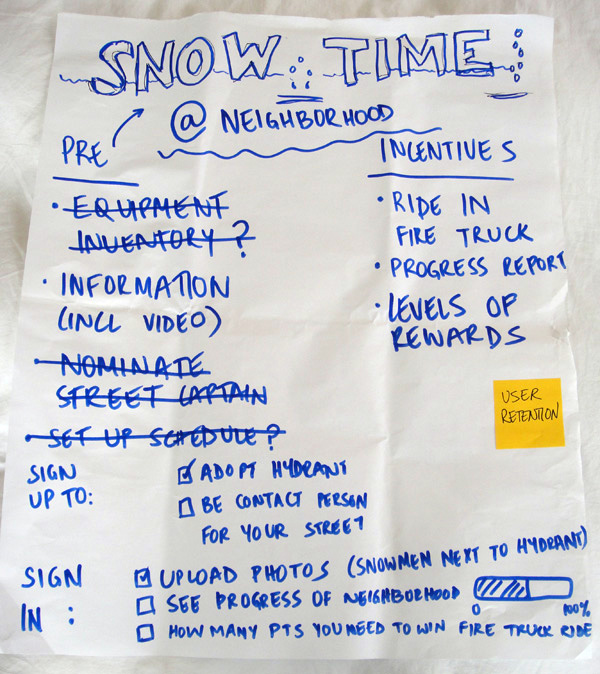 SNOW TIME
@ NEIGHBORHOOD
PRE
• EQUIPMENT
INVENTORY?
• INFORMATION
(INCL VIDEO)
• NOMINATE
STREET CAPTAIN
• SET UP SCHEDULE?
INCENTIVES
• RIDE IN
FIRE TRUCK
• PROGRESS REPORT
• LEVELS OF
REWARDS
USER
RETENTION
SIGN
UP TO:
ADOPT HYDRANT
BE CONTACT PERSON
FOR YOUR STREET
SIGN
IN :
UPLOAD PHOTOS (SNOWMEN NEXT TO HYDRANT)
SEE PROGRESS OF NEIGHBORHOOD
0 100%
HOW MANY PTS YOU NEED TO WIN FIRE TRUCK RIDE